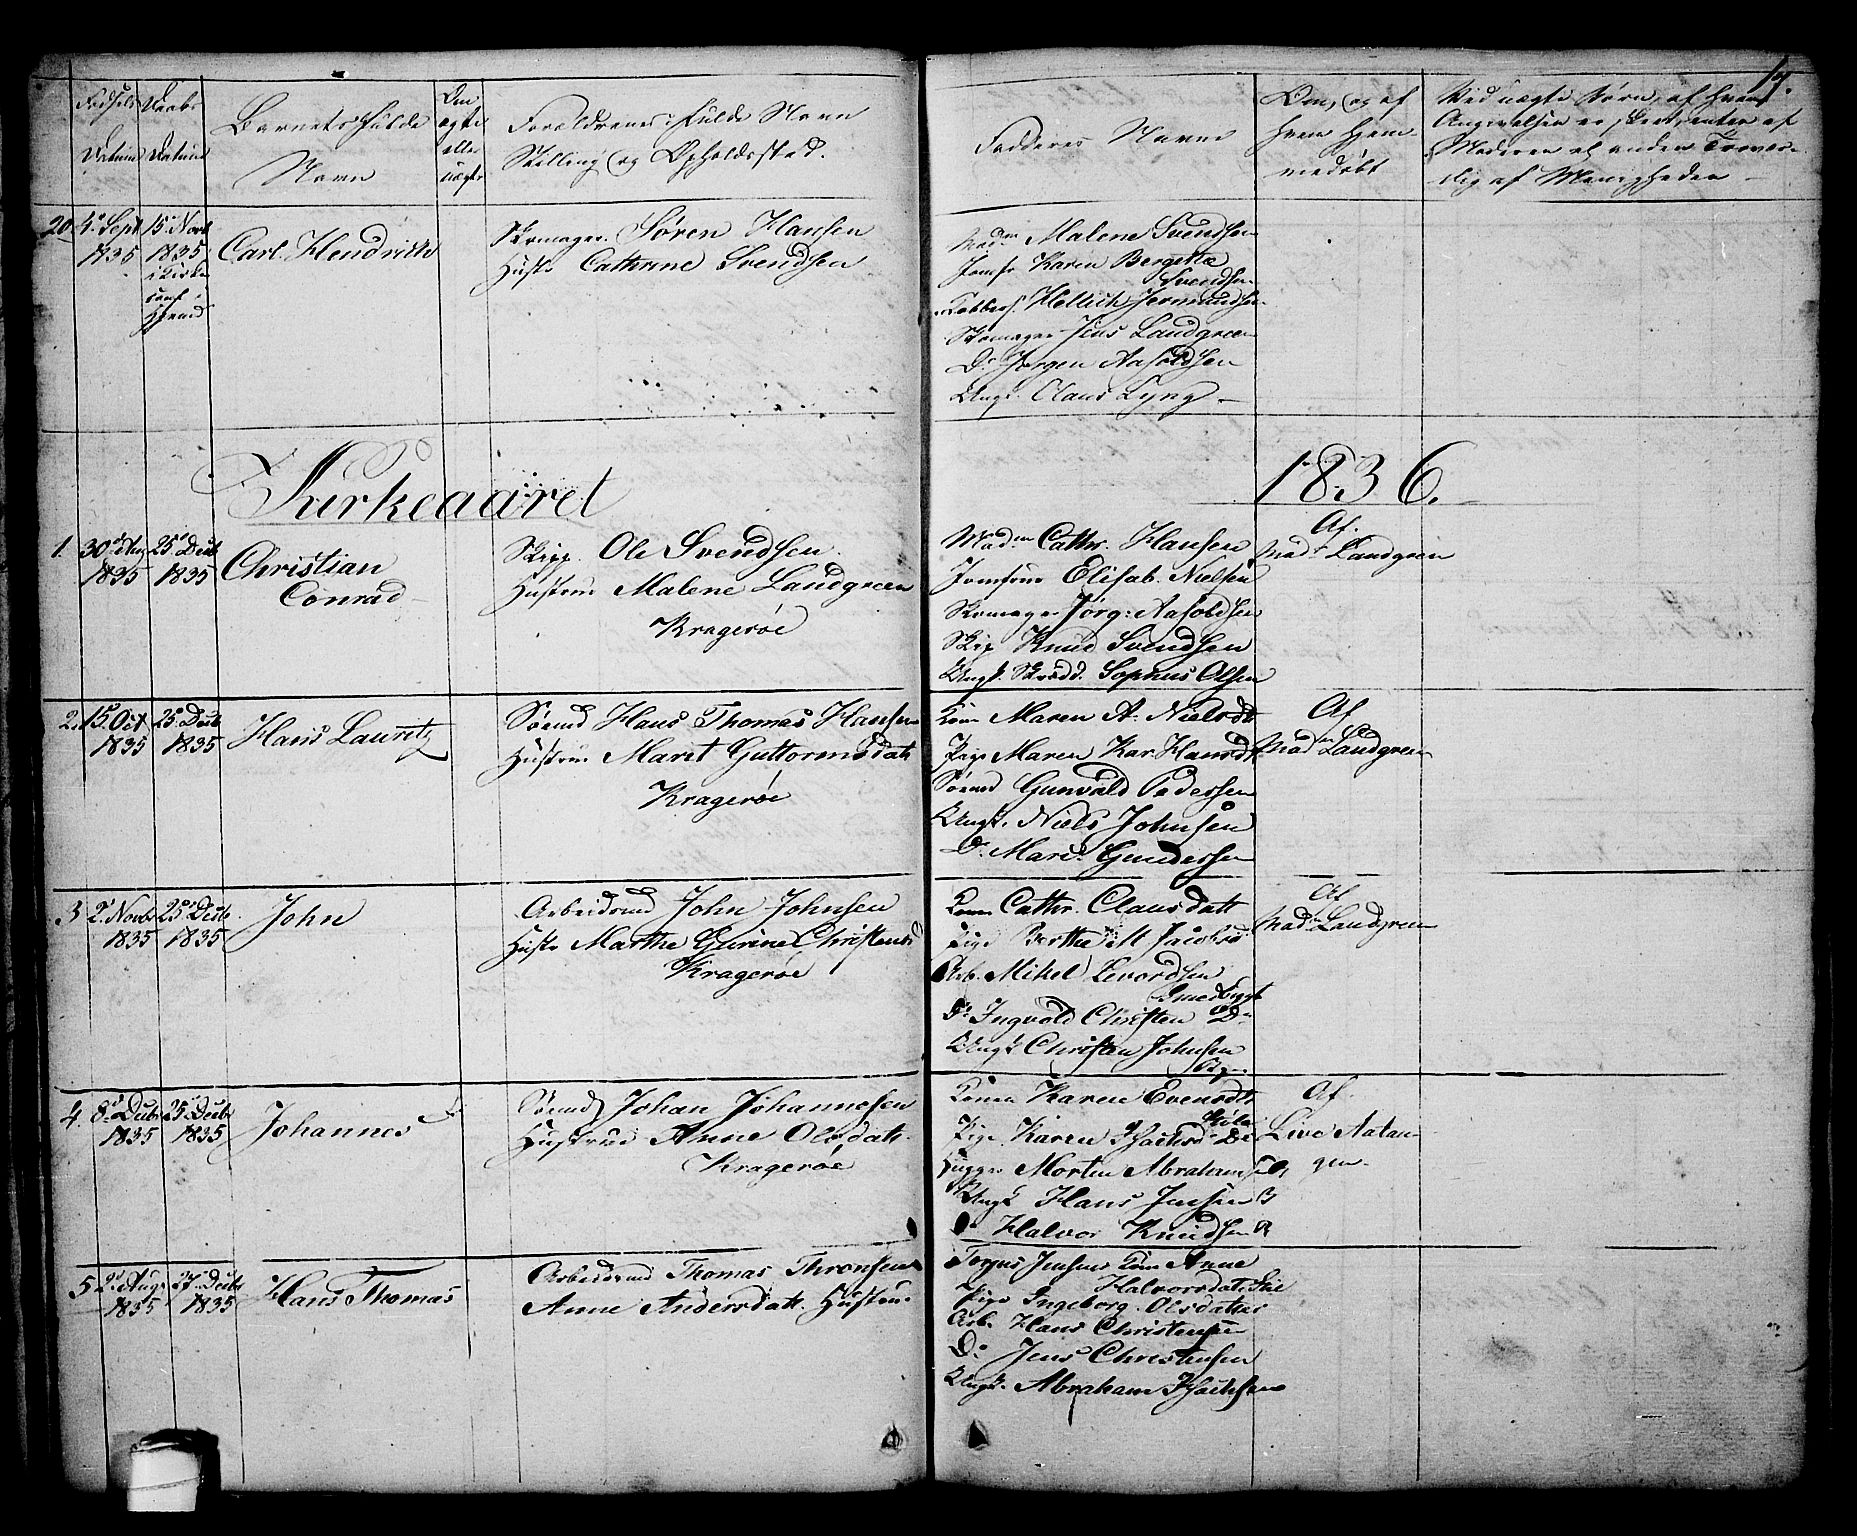 17.
Fødsels Datum
Daabs Datum
Barnets fulde Navn
Om ægte eller uægte
Forældrenes fulde Navn
Stilling og Opholdssted.
Fadderes Navne
Om, og af hvem hjemmedøbt
Ved uægte Børn, af hvem
Angivelsen er skeet, enten af
Moderen el anden Troværdig af Menigheden
20. 4. Sept 1835
15 Novb 1835 i Kirken
Carl Hendrich
Skomager Søren Hansen
Hustr Cathrine Svendsen
Mad. Malene Svendsen
Jomfr Karen Bergette
Svendsen
Kobbers. Hellich Jermundsen
Skomager Jens Landgreen
Do Jørgen Aasoldsen
Ungk. Claus Lyng
Kirkeaaret 1836.
1. 30 Aug 1835
25 Decb 1835
Christian
Conrad
Skipp. Ole Svendsen
Hustrue Malene Landgreen
Kragerøe
Madm Cathr. Hansen
Jomfrue Elisab. Nielsen
Skomager Jørg: Aasoldsen
Skip Knud Svendsen
Ungk. Skrædd. Sophus Olsen
Af
Mad Landgreen
2. 15 Oct 1835
25 Decb 1835
Hans Lauritz
Sømd Hans Thomas Hansen
Hustrue Maret Guttormsdatt
Kragerøe
Kone Maren A. Nielsdt
Pige Maren Kar. Hansdt
Sømd Gunvald Pedersen
Ungk. Niels Johnsen
Do Mari. Gundersen
Af
Mad Landgreen
3 2 Novbr 1835
25 Decbr 1835
John
Arbeidsmd John Johnsen
Hustr Marthe Gurine Christensd
Kragerøe
Kone Cathr. Clausdatt
Pige Berthe M Jacobsd
Arb. Mikel Levordsen
Smedbygt
Do Ingvald Christen Do
Ungk Christen Johnsen
Af
Mad Landgreen
4. 8 Decbr 1835
25 Decbr 1835
Johannes
Sømd Johan Johannesen
Hustrue Anne Olsdatt
Kragerøe
Konen Karen Evensdt
Pige Karen Isachsd
Hugger Morten Abrahams
Ungk Hans Jensen
Do Halvor Knudsen
Af
Live Aatangen
5 2 Aug 1835
27 Decbr 1835
Hans Thomas
Arbeidsmd Thomas Thronsen
Anne Andersdatt. Hustrue
Tergus Jensens Kone Anne
Halvorsdatt
Pige Ingeborg Olsdatter
Arb. Hans Christensen
Do Jens Christensen
Ungk. Abraham Isachsen